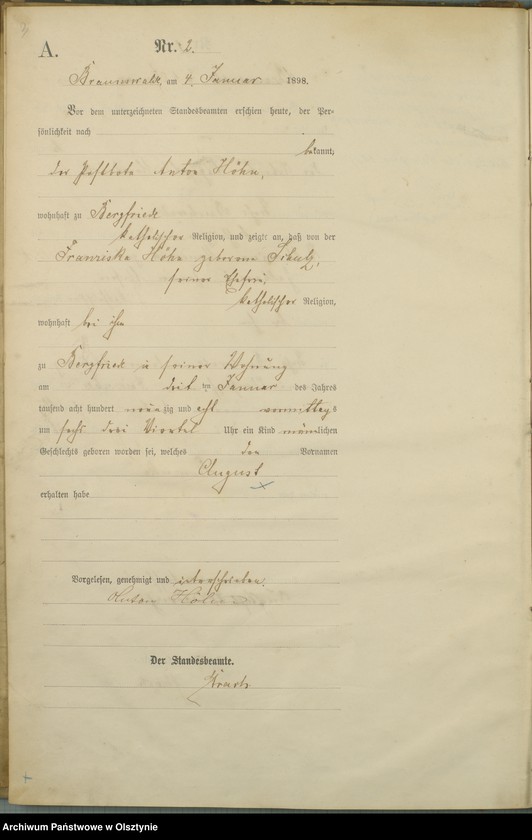 A.
Nr. 2.
am 4. Januar 1898.
Vor dem unterzeichneten Standesbeamten erschien heute, der Per-
sönlichkeit nach
bekannt,
der Postbote Anton Höhn,
wohnhaft zu Bergfriede
katholischer Religion, und zeigte an, daß von der
Franziska Höhn geborene
seiner Ehefrau,
katholischer Religion,
wohnhaft bei ihm
zu Bergfriede in seiner Wohnung
am ten Januar des Jahres
tausend acht hundert neunzig und acht vormittags
um sechs drei Viertel Uhr ein Kind männlichen
Geschlechts geboren worden sei, welches den Vornamen
August
erhalten habe
Vorgelesen, genehmigt und unterschrieben.
Anton Höhn
Der Standesbeamte.
Archiwum Państwowe w Olsztynie